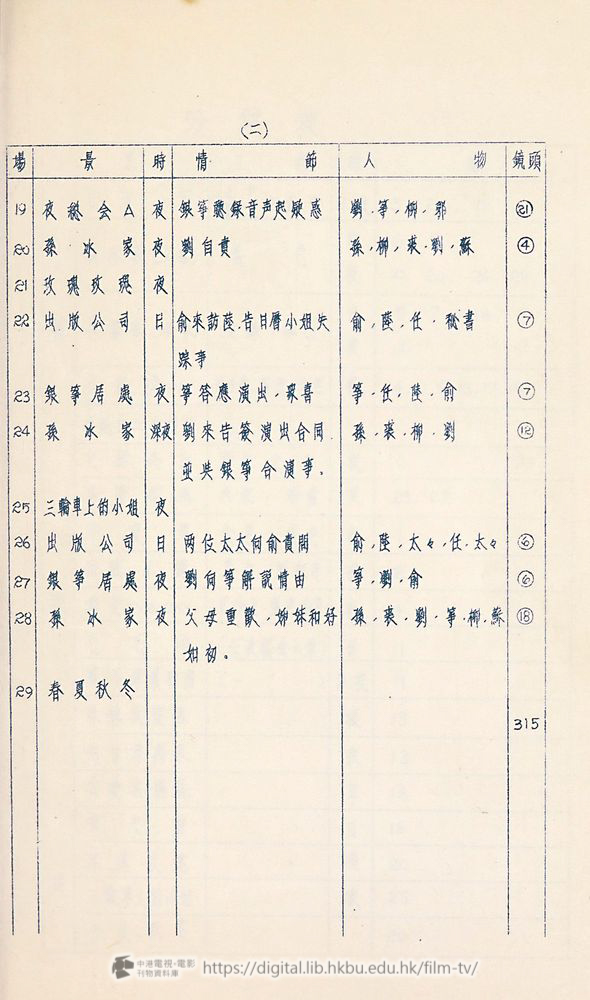 (二)
場 景 時 情 節 人 物 鏡頭
19 夜總会A 夜 銀箏聽錄音声起疑惑 劉、箏、柳、郭 ㉑
20 孫冰家 夜 劉自責 孫、柳、裘、劉、蘇 ④
21 玫瑰玫瑰 夜
22 出版公司 日 俞來訪陸、告日曆小姐失 俞、陸、任、秘書 ⑦
踪事
23 銀箏居處 夜 箏答應演出、眾喜 箏、任、陸、俞 ⑦
24 孫冰家 深夜 劉來告簽演出合同 孫、裘、柳、劉 ⑫
並與銀箏合演事。
25 三輪車上的小姐 夜
26 出版公司 日 两位太太向俞責問 俞、陸、太々、任、太々 ⑥
27 銀箏居處 夜 劉向箏解說情由 箏、劉、俞 ⑥
28 孫冰家 夜 父母重歡、姊妹和好 孫、裘、劉、箏、柳、蘇 ⑱
如初。
29 春夏秋冬
315
中港電視·電影
刊物資料庫
https://digital.lib.hkbu.edu.hk/film-tv/